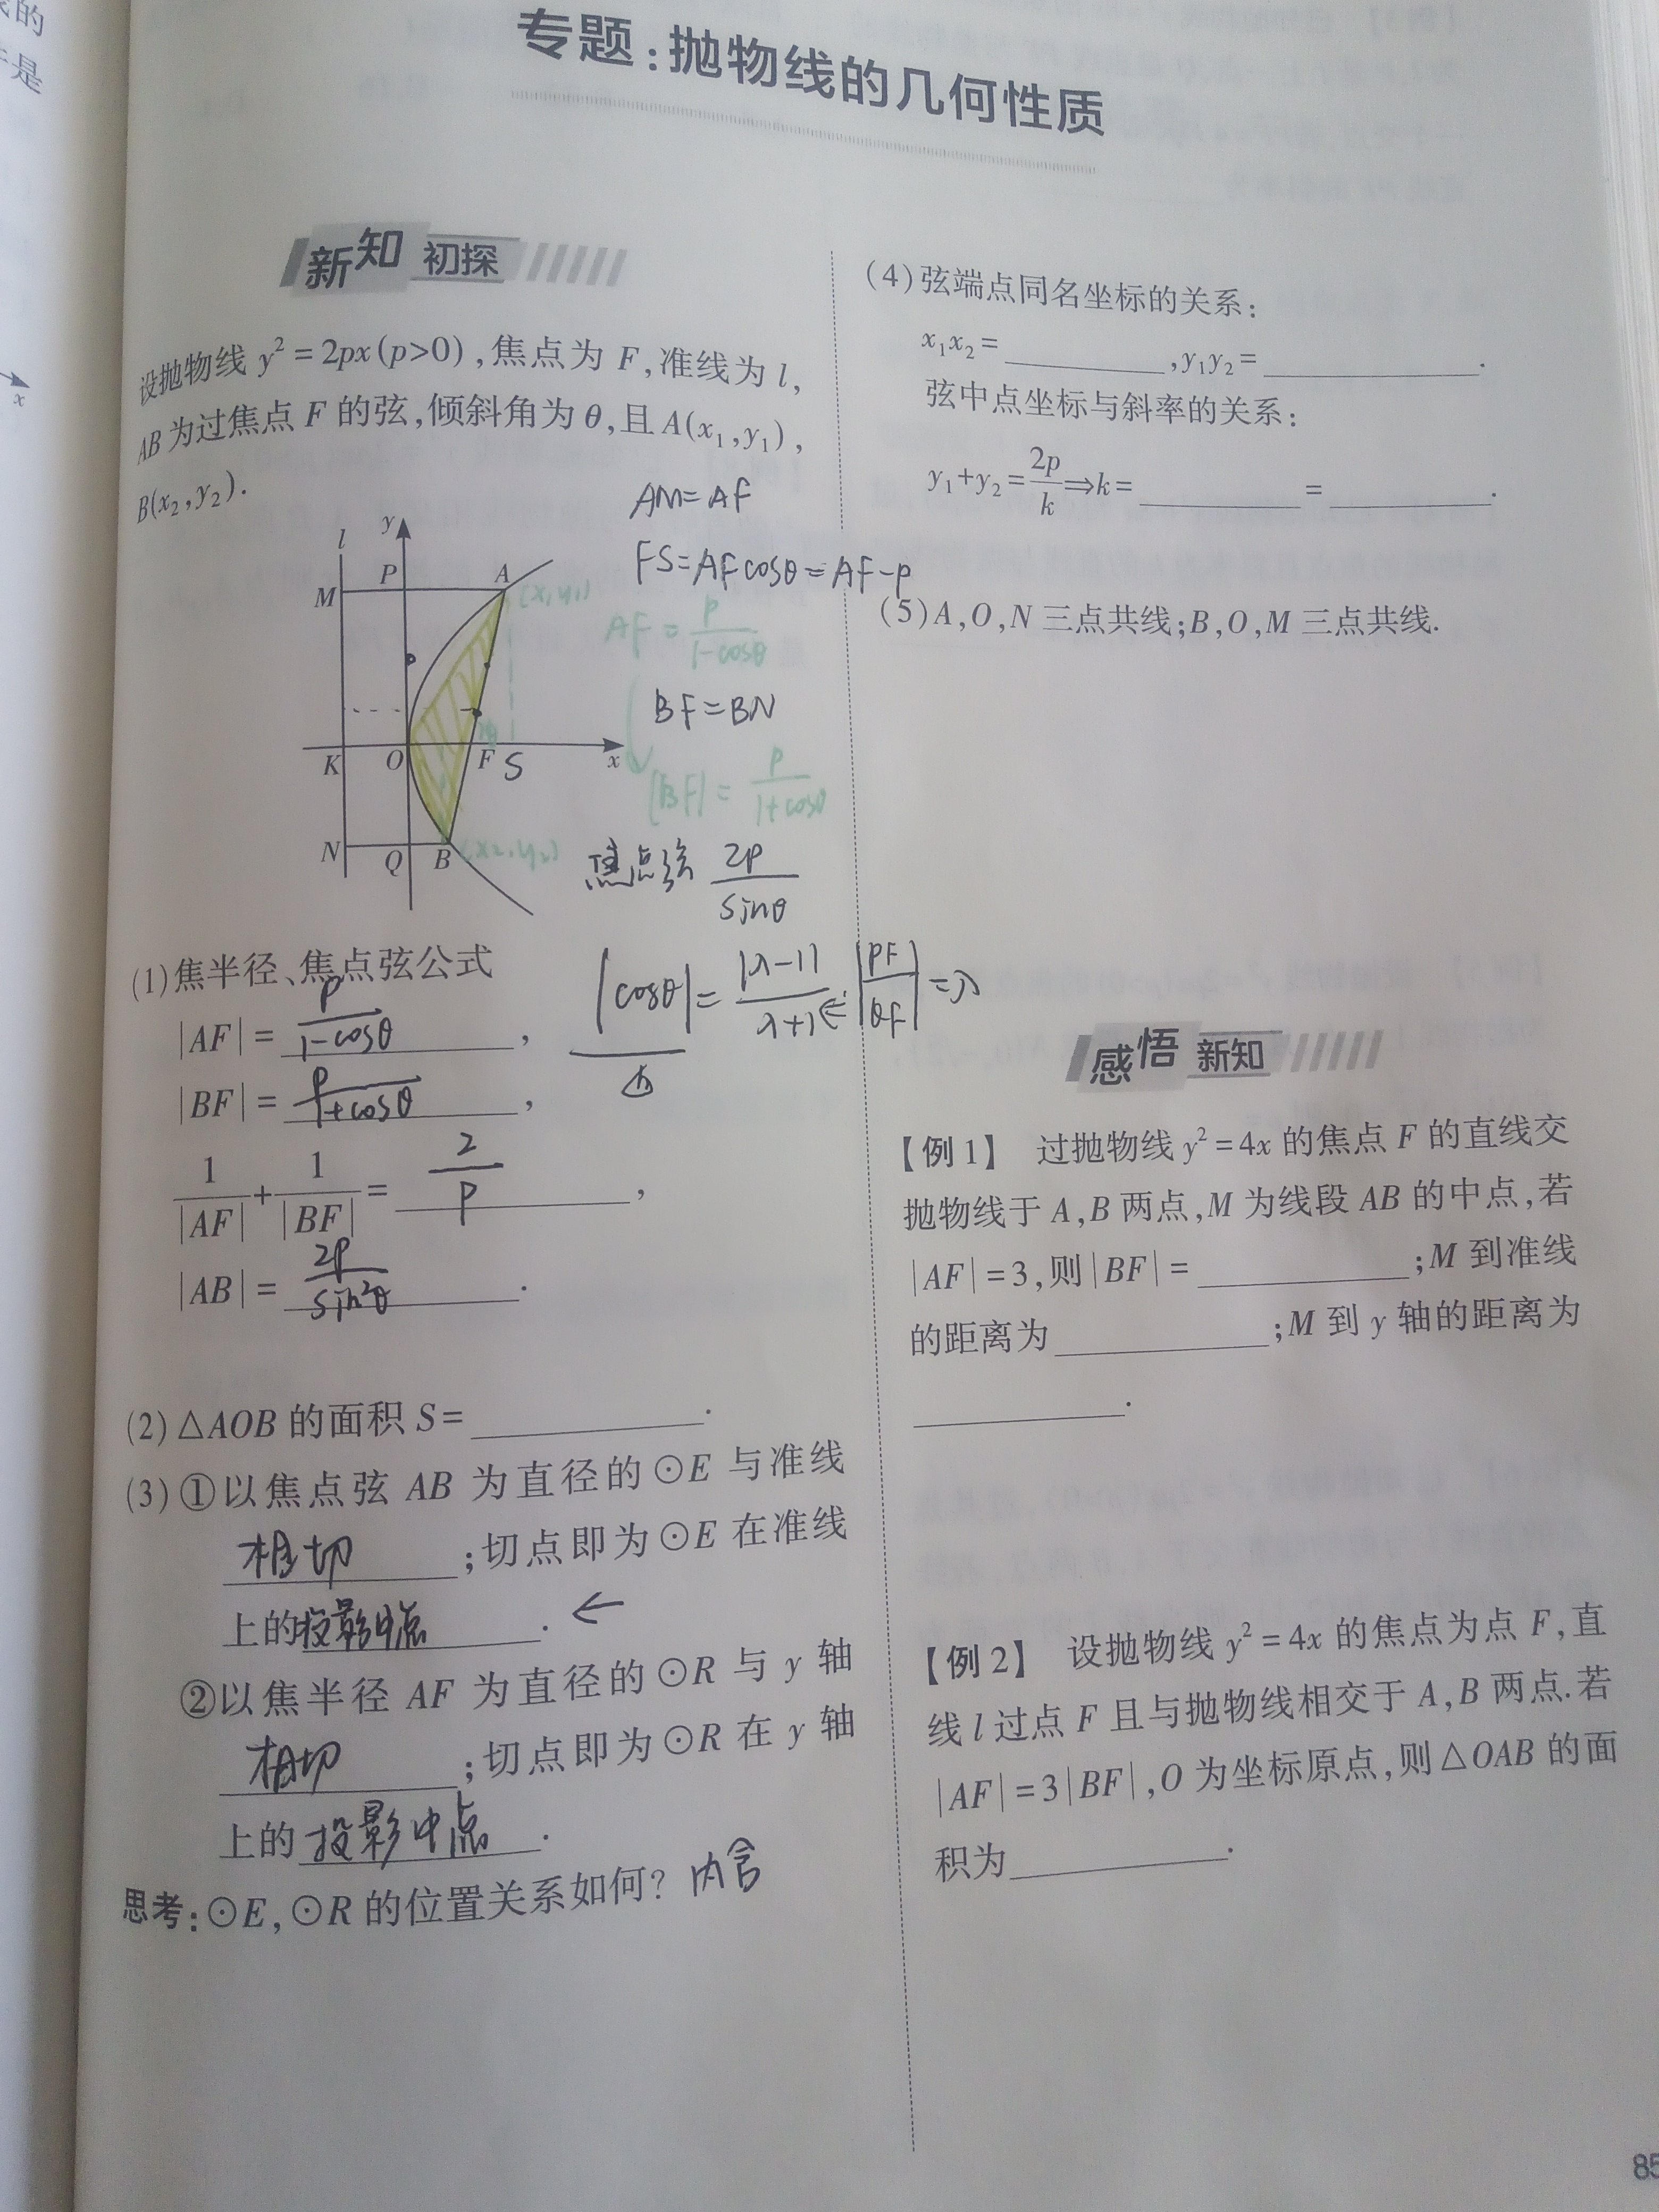 线的
于是
x
专题:抛物线的几何性质
新知 初探
设抛物线 y² = 2px(p>0),焦点为 F,准线为 l,
AB 为过焦点 F 的弦,倾斜角为 θ,且 A(x₁,y₁),
B(x₂,y₂).
AM=AF
FS=AFcosθ=AF-p
AF=p/(1-cosθ)
BF=BN
|BF|=p/(1+cosθ)
焦点弦 2p/sinθ
l y
M P A (x₁,y₁)
θ
K O F S x
N Q B (x₂,y₂)
(1)焦半径、焦点弦公式
|cosθ|=|λ-1|/(λ+1) ⇐ |PF|/|QF|=λ
|AF|= p/(1-cosθ) ,
|BF|= p/(1+cosθ) ,
1/|AF|+1/|BF|= 2/p ,
|AB|= 2p/sin²θ .
(2)△AOB 的面积 S= ________.
(3)①以焦点弦 AB 为直径的⊙E 与准线
相切 ;切点即为⊙E 在准线
上的投影中点 . ←
②以焦半径 AF 为直径的⊙R 与 y 轴
相切 ;切点即为⊙R 在 y 轴
上的 投影中点 .
思考:⊙E,⊙R 的位置关系如何? 内含
(4)弦端点同名坐标的关系:
x₁x₂= ________,y₁y₂= ________.
弦中点坐标与斜率的关系:
y₁+y₂=2p/k⇒k= ________ = ________.
(5)A,O,N 三点共线;B,O,M 三点共线.
感悟 新知
【例1】 过抛物线 y² = 4x 的焦点 F 的直线交
抛物线于 A,B 两点,M 为线段 AB 的中点,若
|AF|=3,则|BF|= ________;M 到准线
的距离为________;M 到 y 轴的距离为
________.
【例2】 设抛物线 y² = 4x 的焦点为点 F,直
线 l 过点 F 且与抛物线相交于 A,B 两点.若
|AF|=3|BF|,O 为坐标原点,则△OAB 的面
积为________.
85